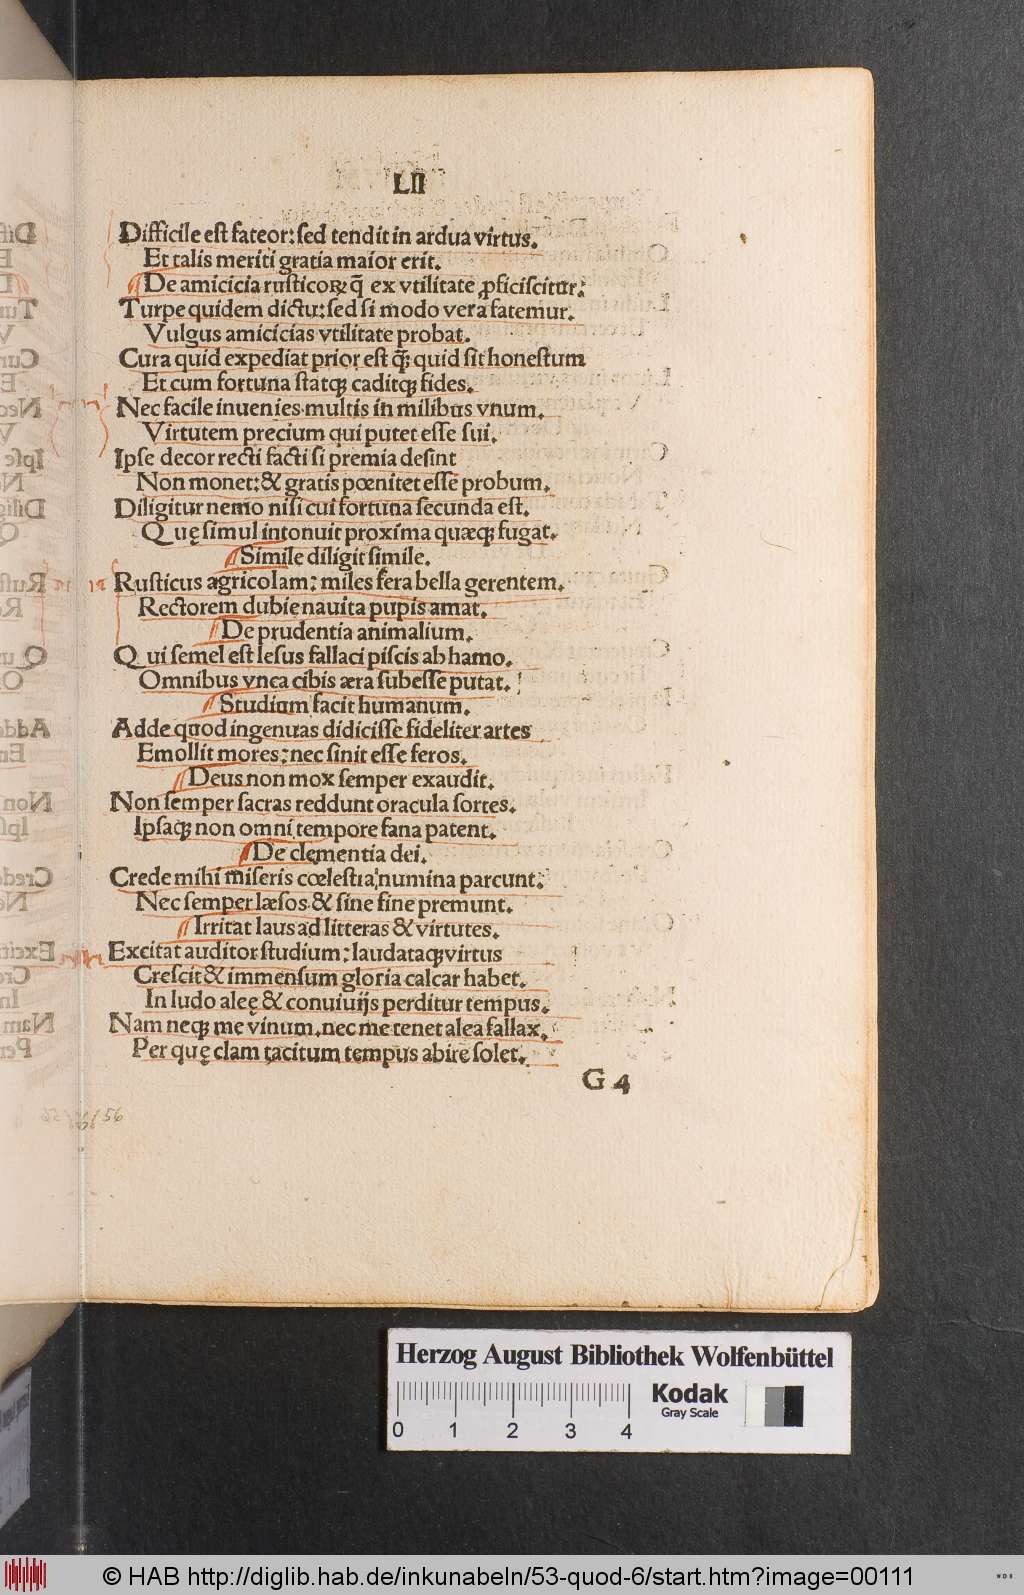 LII
Difficile est fateor: sed tendit in ardua virtus.
Et talis meriti gratia maior erit.
De amicicia rusticoꝝ q̄ ex vtilitate ꝓficiscitur.
Turpe quidem dictu: sed si modo vera fatemur.
Vulgus amicicias vtilitate probat.
Cura quid expediat prior est q̄ꝫ quid sit honestum
Et cum fortuna statqꝫ caditqꝫ fides.
Nec facile inuenies multis in milibus vnum.
Virtutem precium qui putet esse sui.
Ipse decor recti facti si premia desint
Non monet: & gratis pœnitet esse probum.
Diligitur nemo nisi cui fortuna secunda est.
Quę simul intonuit proxima quæqꝫ fugat.
Simile diligit simile.
Rusticus agricolam: miles fera bella gerentem.
Rectorem dubie nauita pupis amat.
De prudentia animalium.
Qui semel est lesus fallaci piscis ab hamo.
Omnibus vnca cibis æra subesse putat.
Studium facit humanum.
Adde quod ingenuas didicisse fideliter artes
Emollit mores: nec sinit esse feros.
Deus non mox semper exaudit.
Non semper sacras reddunt oracula sortes.
Ipsaqꝫ non omni tempore fana patent.
De clementia dei.
Crede mihi miseris cœlestia numina parcunt.
Nec semper læsos & sine fine premunt.
Irritat laus ad litteras & virtutes.
Excitat auditor studium: laudataqꝫ virtus
Crescit & immensum gloria calcar habet.
In ludo aleę & conuiuijs perditur tempus.
Nam neqꝫ me vinum. nec me tenet alea fallax.
Per quę clam tacitum tempus abire solet.
G 4
Herzog August Bibliothek Wolfenbüttel
0 1 2 3 4
Kodak
Gray Scale
© HAB http://diglib.hab.de/inkunabeln/53-quod-6/start.htm?image=00111